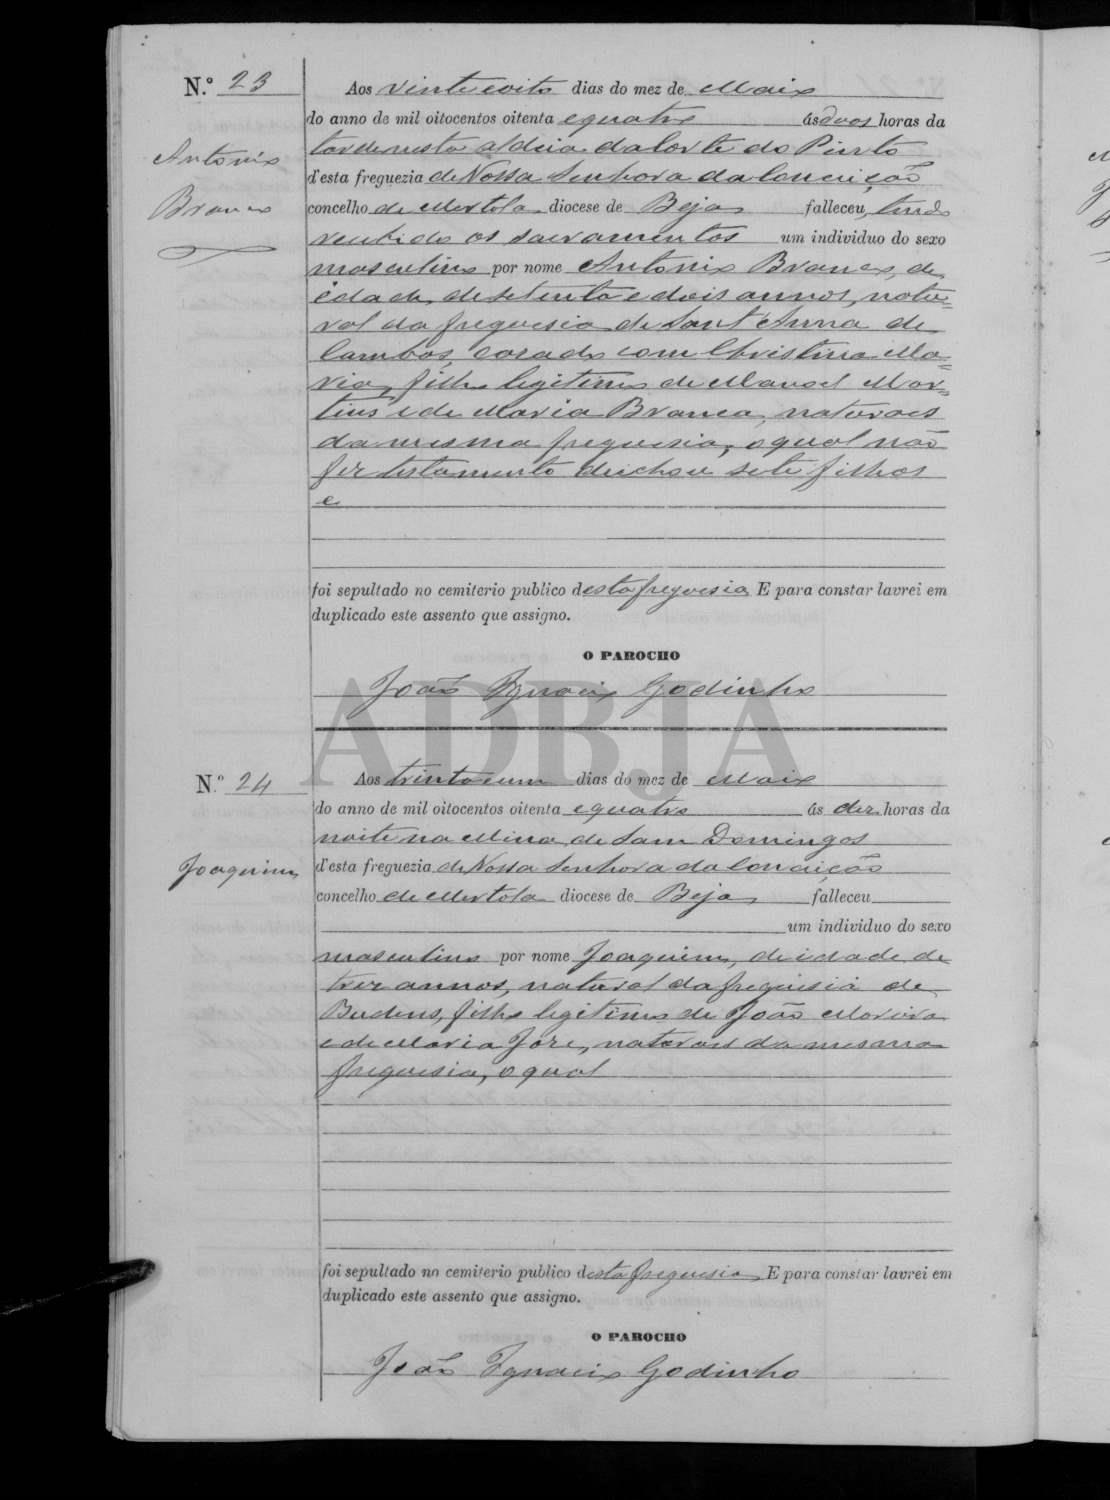 N.º 23
Antonio
Branco
Aos vinte e oito dias do mez de Maio
do anno de mil oitocentos oitenta e quatro ás duas horas da
tarde nesta aldeia da Corte do Pinto
d'esta freguezia de Nossa Senhora da Conceição
concelho de Mertola diocese de Beja falleceu, tendo
recebido os sacramentos um individuo do sexo
masculino por nome Antonio Branco, de
idade, de setenta e dois annos, natu=
ral da freguesia de Sant'Anna de
Cambas, casado com Christina Ma=
ria, filho legitimo de Manoel Mar=
tins e de Maria Branca, naturaes
da mesma freguesia, o qual não
fez testamento deichou sete filhos
e
foi sepultado no cemiterio publico desta freguesia E para constar lavrei em
duplicado este assento que assigno.
O PAROCHO
João Ignacio Godinho
ADBJA
N.º 24
Joaquim
Aos trinta e um dias do mez de Maio
do anno de mil oitocentos oitenta e quatro ás dez horas da
noite na Mina de Sam Domingos
d'esta freguezia de Nossa Senhora da Conceição
concelho de Mertola diocese de Beja falleceu
um individuo do sexo
masculino por nome Joaquim, de idade de
trez annos, natural da freguesia de
Budens, filho legitimo de João Moreira
e de Maria José, naturaes da mesma
freguesia, o qual
foi sepultado no cemiterio publico desta freguesia E para constar lavrei em
duplicado este assento que assigno.
O PAROCHO
João Ignacio Godinho